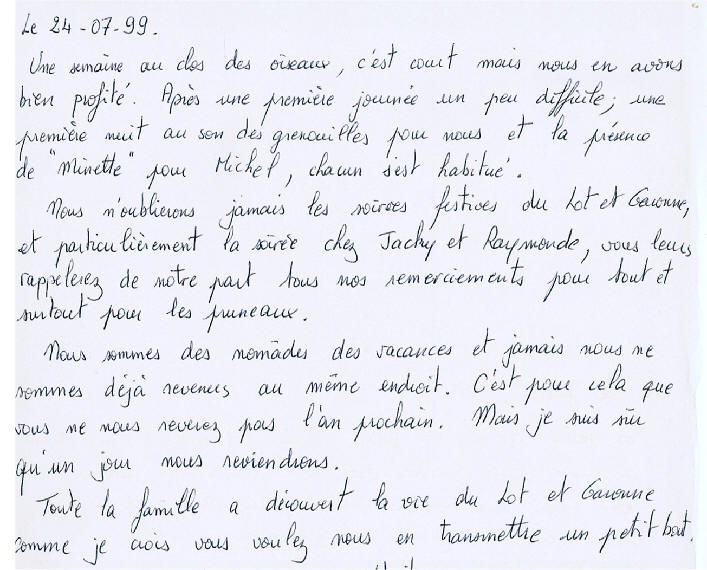 Le 24-07-99.
Une semaine au clos des oiseaux, c'est court mais nous en avons
bien profité. Après une première journée un peu difficile, une
première nuit au son des grenouilles pour nous et la présence
de "Minette" pour Michel, chacun s'est habitué.
Nous n'oublierons jamais les soirées festives du Lot et Garonne,
et particulièrement la soirée chez Jacky et Raymonde, vous leurs
rappelerez de notre part tous nos remerciements pour tout et
surtout pour les pruneaux.
Nous sommes des nomades des vacances et jamais nous ne
sommes déjà revenus au même endroit. C'est pour cela que
vous ne nous reverez pas l'an prochain. Mais je suis sûr
qu'un jour nous reviendrons.
Toute la famille a découvert la vie du Lot et Garonne
comme je crois vous voulez nous en transmettre un petit bout.